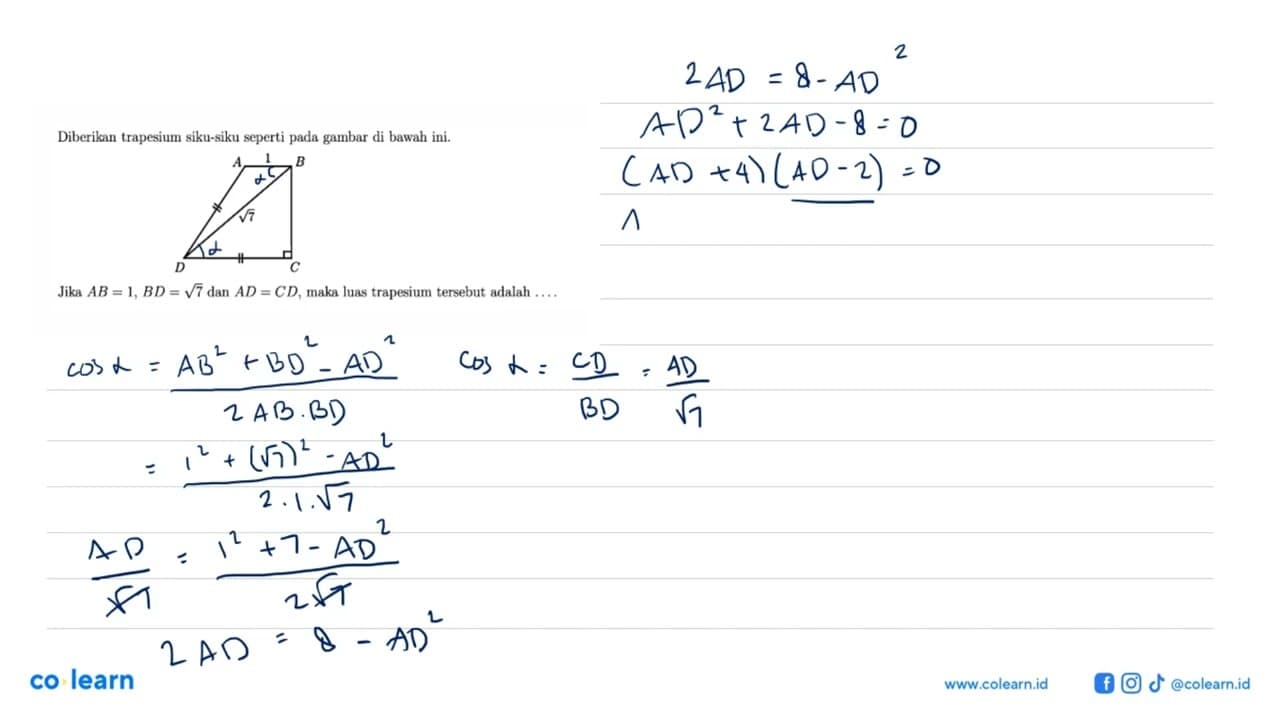 Diberikan trapesium siku-siku seperti pada gambar di bawah ini.
A 1 B
α
√7
α
D C
Jika AB = 1, BD = √7 dan AD = CD, maka luas trapesium tersebut adalah ....
cos α = AB² + BD² - AD² / 2 AB . BD
= 1² + (√7)² - AD² / 2 . 1 . √7
AD / √7 = 1² + 7 - AD² / 2√7
2 AD = 8 - AD²
cos α = CD / BD = AD / √7
2 AD = 8 - AD²
AD² + 2 AD - 8 = 0
(AD + 4) (AD - 2) = 0
co learn
www.colearn.id
@colearn.id